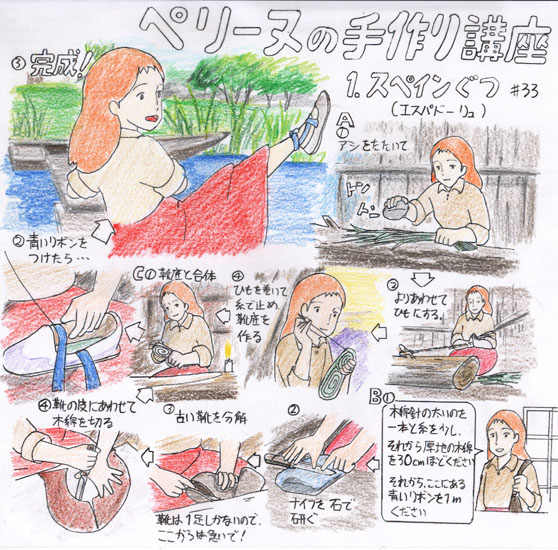 ペリーヌの手作り講座
1.スペインぐつ #33
(エスパドーリュ)
A
①
アシをたたいて
ドン
ドン
②
よりあわせて
ひもにする。
④
ひもを巻いて
糸で止め
靴底を
作る
B①
木綿針の太いのを
一本と糸を少し、
それから厚地の木綿
を30cmほどください
それから、ここにある
青いリボンを1m
ください
②
ナイフを石で
研ぐ
③
古い靴を分解
靴は1足しかないので、
ここからは急いで!
④靴の皮にあわせて
木綿を切る
C①靴底と合体
②青いリボンを
つけたら…
③完成!